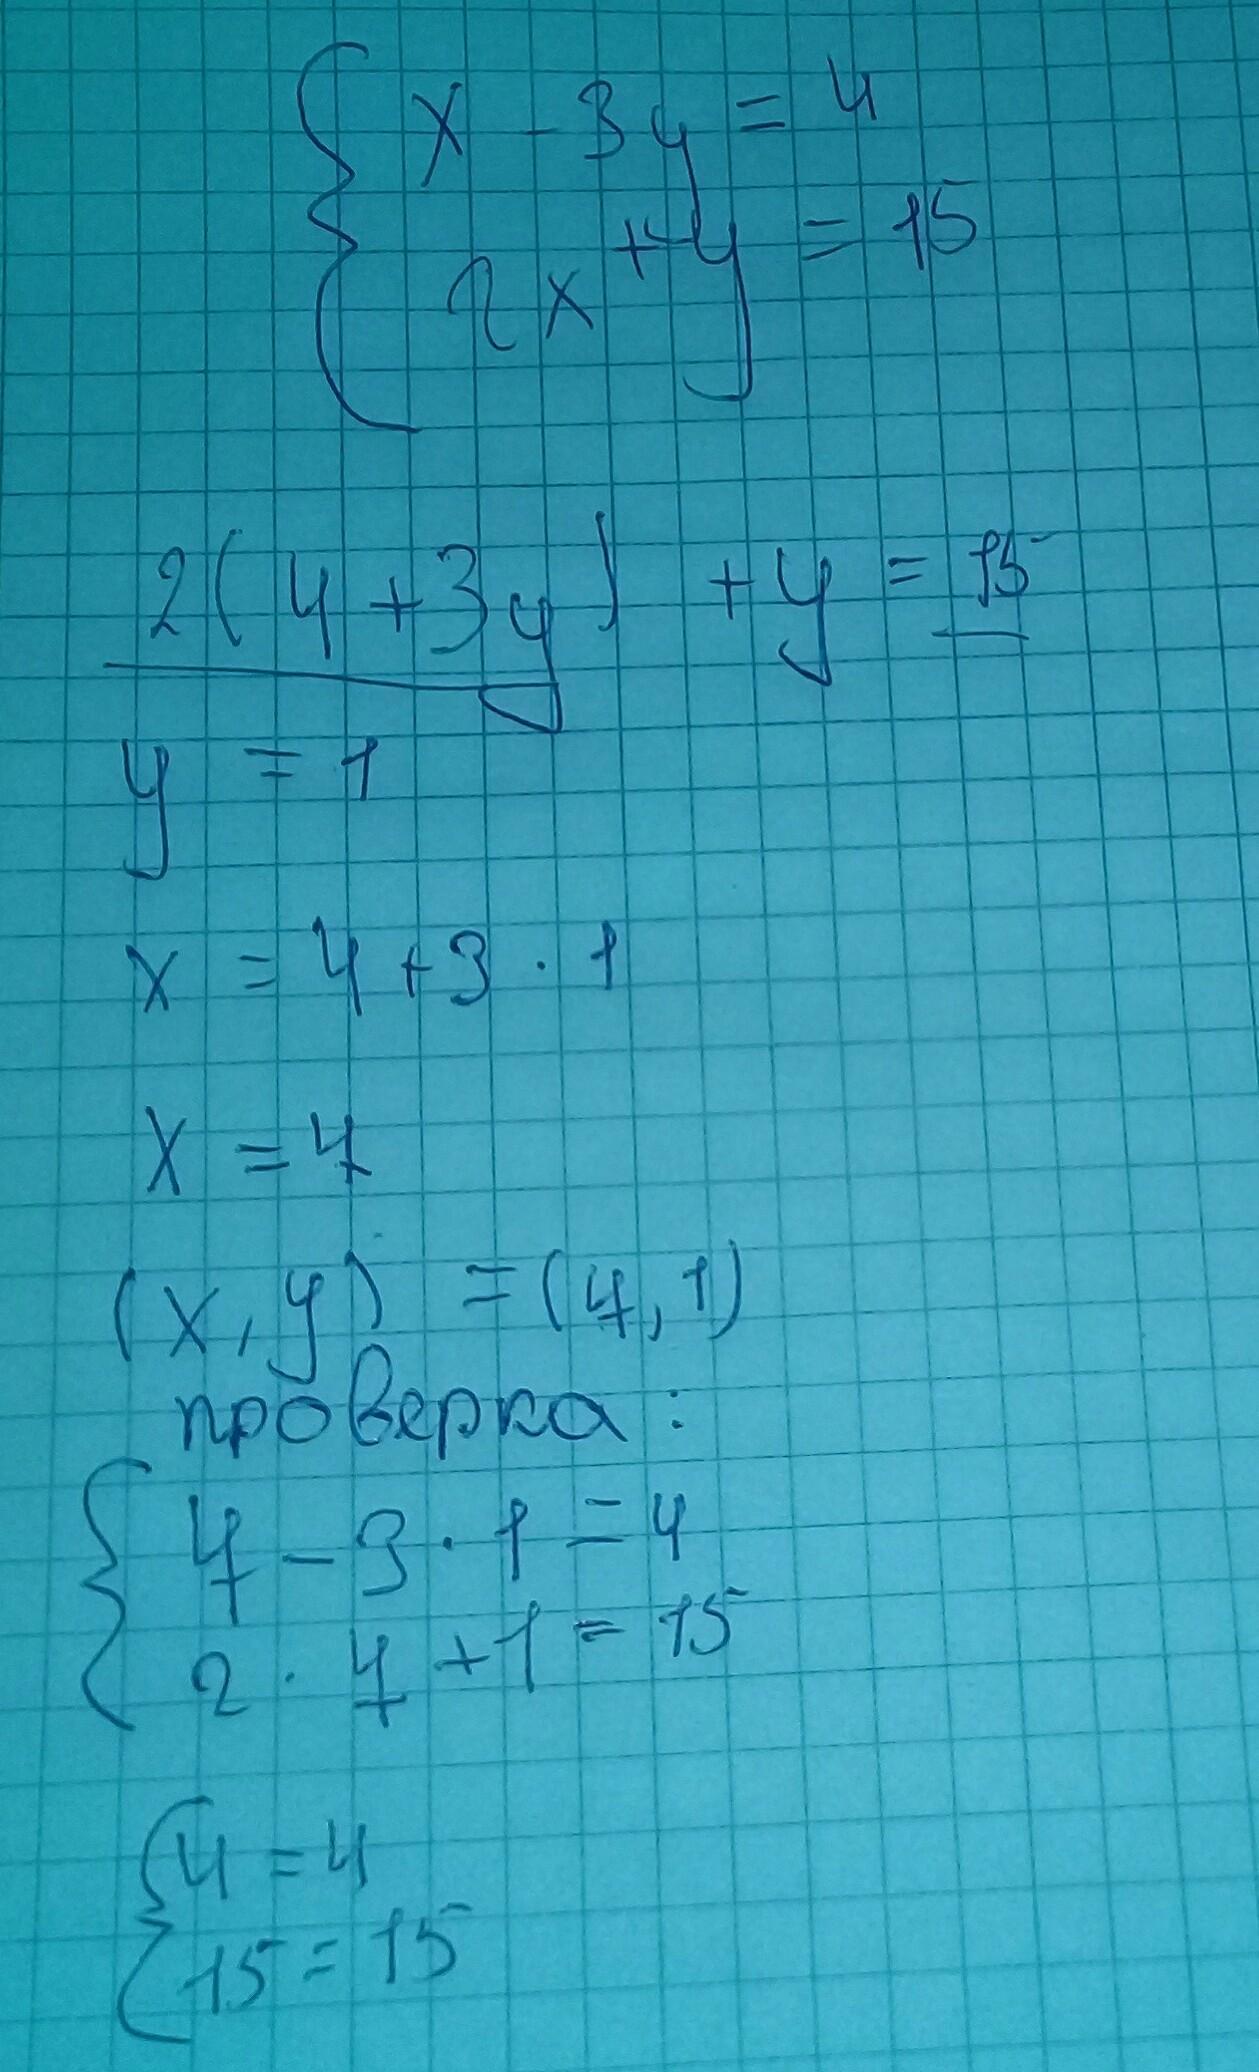 x - 3y = 4
2x + y = 15
2(4 + 3y) + y = 15
y = 1
x = 4 + 3 · 1
x = 7
(x, y) = (7, 1)
проверка:
7 - 3 · 1 = 4
2 · 7 + 1 = 15
4 = 4
15 = 15